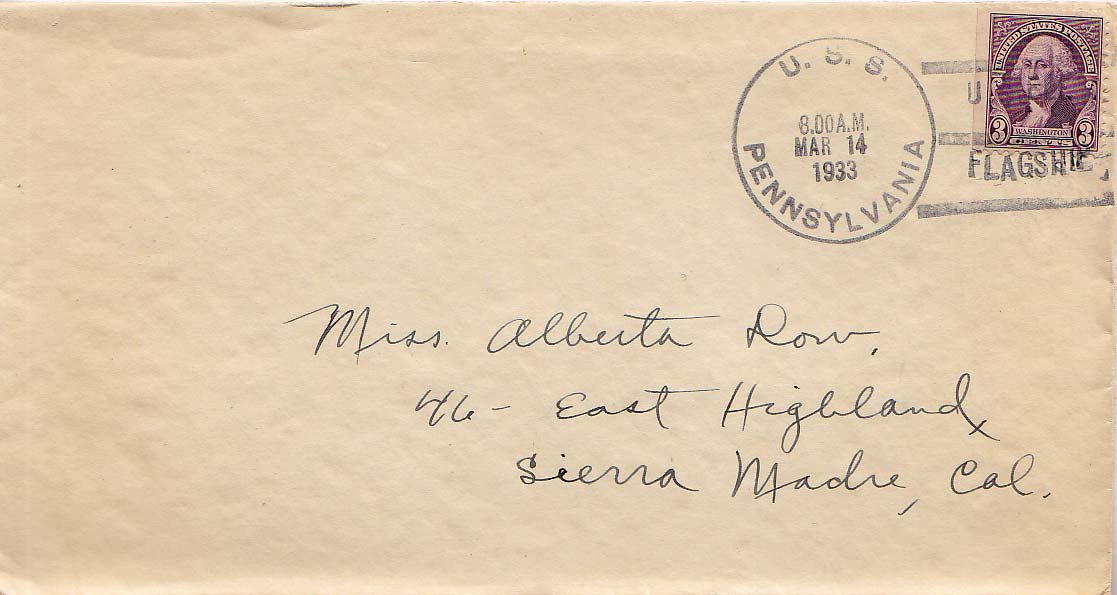 UNITED STATES POSTAGE
3 WASHINGTON 3
CENTS
U. S. S.
8.00 A.M.
MAR 14
1933
PENNSYLVANIA
U
FLAGSHIP
Miss. Alberta Row,
46 - East Highland,
Sierra Madre, Cal.